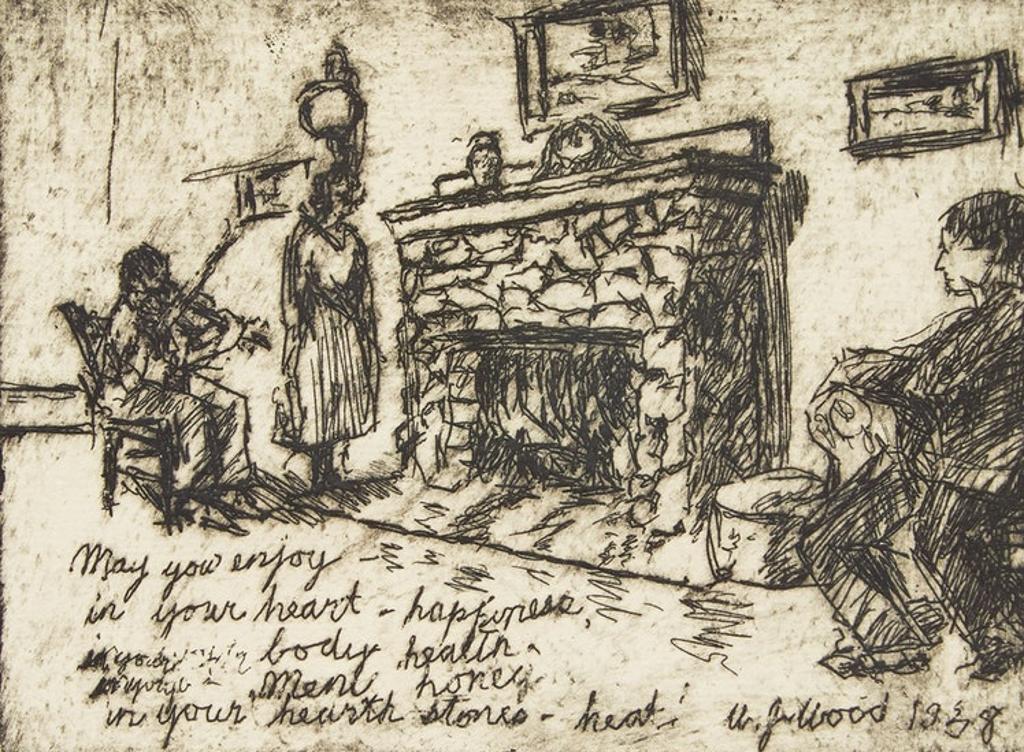 May you enjoy -
in your heart - happiness,
body health -
honey
in your hearth stones - heat!
W. J. Wood 1928